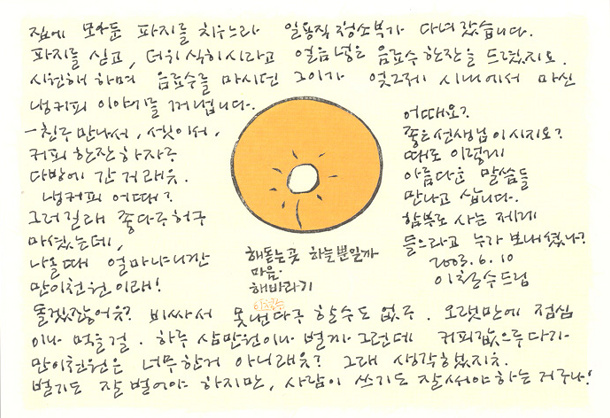 집에 모아둔 파지를 치우느라 일용직 청소부가 다녀갔습니다.
파지를 싣고, 더위 식히시라고 얼음 넣은 음료수 한잔을 드렸지요.
시원해 하며 음료수를 마시던 그이가 엊그제 시내에서 마신
냉커피 이야기를 꺼냅니다.
- 친구 만나서, 셋이서,
커피 한잔 하자구
다방에 간거래유.
냉커피 어때?
그러길래 좋다구 허구
마셨는데,
나올때 얼마냐니깐
만이천원이래!
어때요?
좋은 선생님이시지요?
때로 이렇게
아름다운 말씀들
만나고 삽니다.
함부로 사는 제게
들으라고 누가 보내셨나?
2003. 6. 10
이철수드림
해돋는곳 하늘뿐일까
마음.
해바라기
이철수
돌겠잖어유? 비싸서 못낸다구 할수도 없구. 오랫만에 점심
이나 먹을걸. 하루 삼만원이나 벌까 그런데 커피값으루다가
만이천원은 너무한거 아니래유? 그래 생각했지유.
벌기도 잘 벌어야 하지만, 사람이 쓰기도 잘써야 하는 거구나!